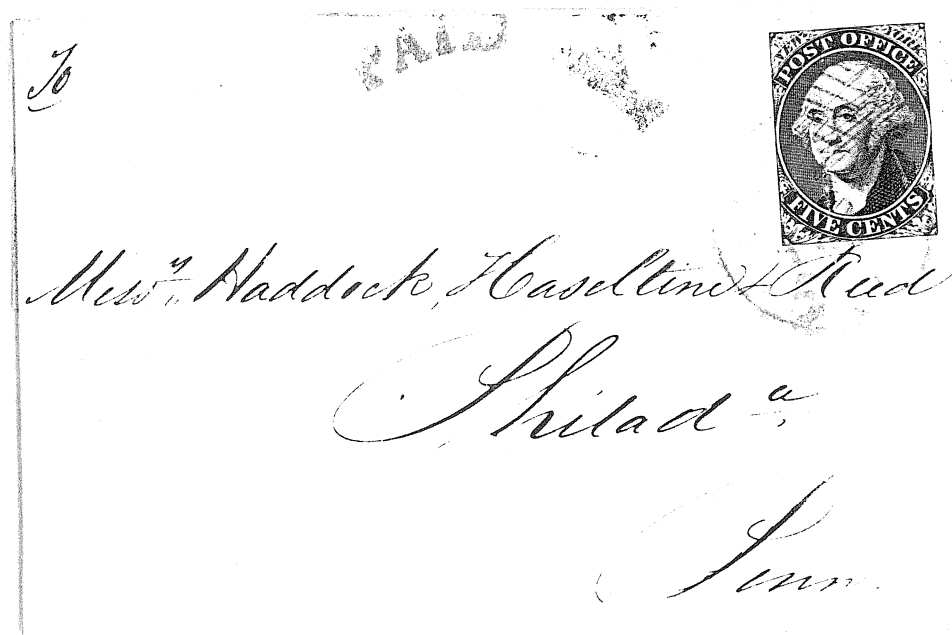 To
PAID
NEW YORK
POST OFFICE
FIVE CENTS
Mess.rs Haddock, Haseltine & Reed
Philad.a
Penn.